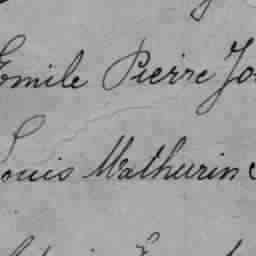 Emile Pierre Jo
Louis Mathurin